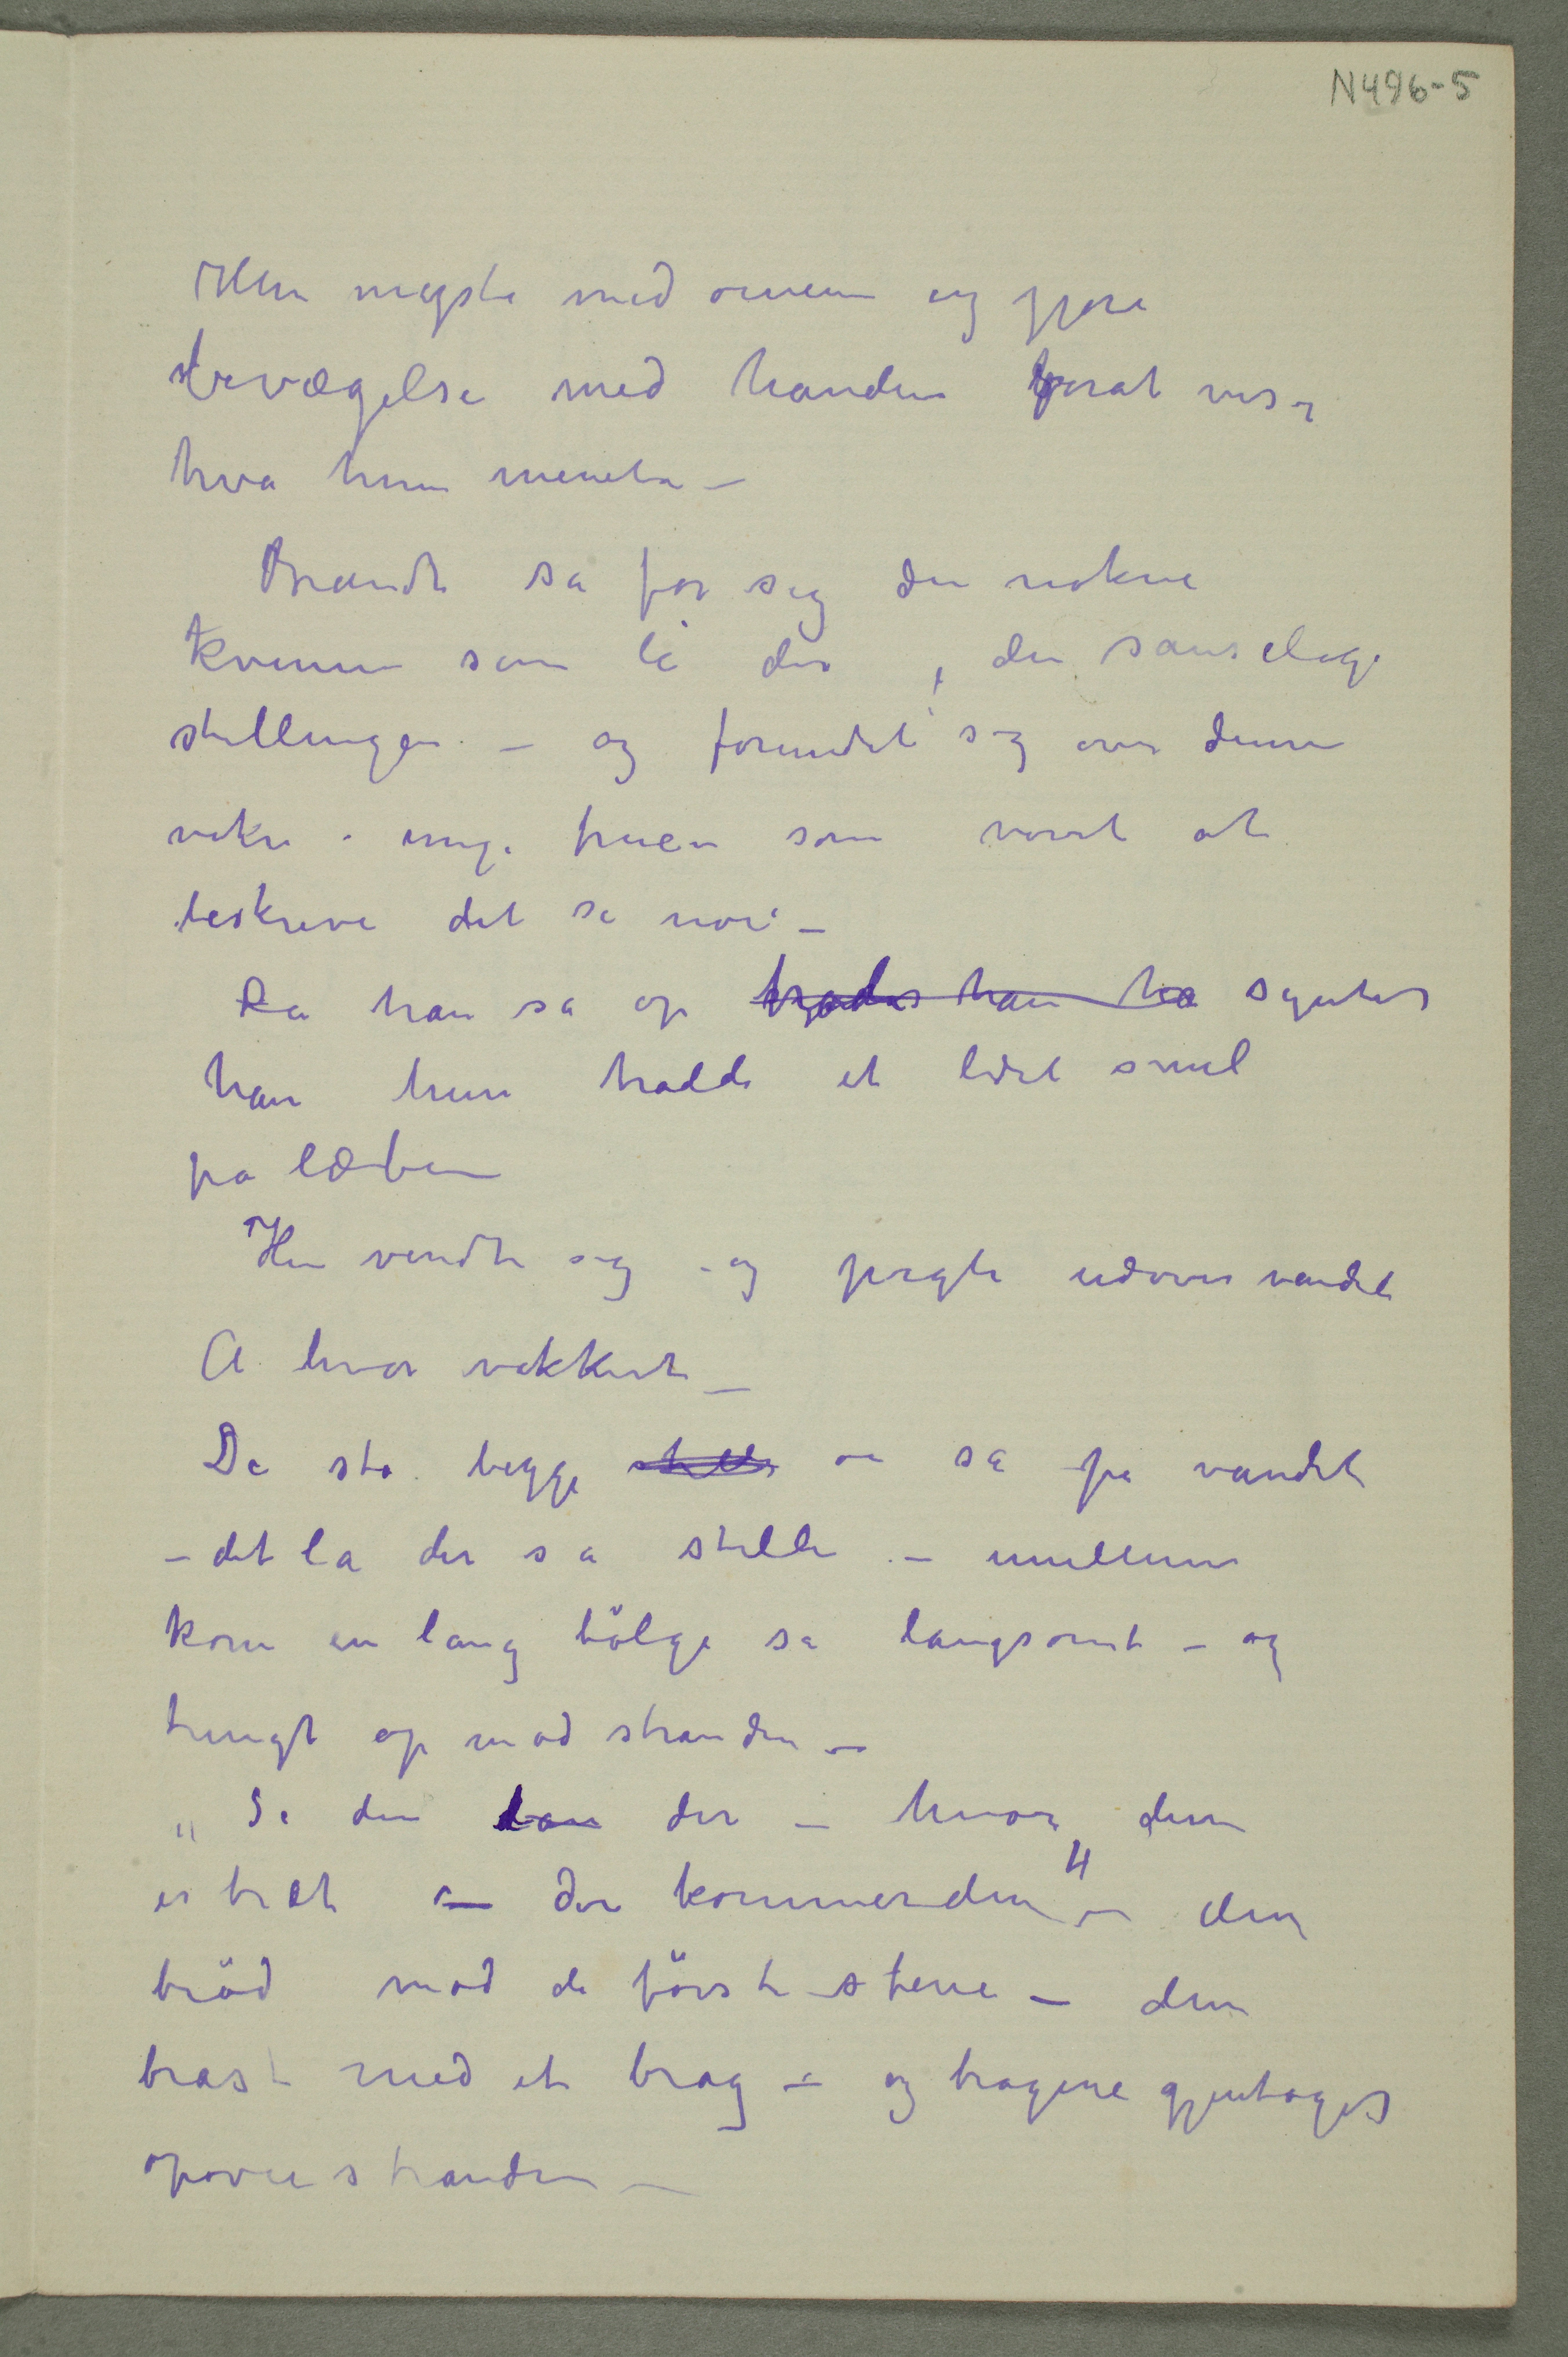 N496-5
Hun mysta med øinene og gjøre
bevægelse med handen forat vise
hva hun menete –
Brandt sa for sig den nøkne
kvinne som lå der, den sanselige
stillingen – og forundret sig over denne
vakre – unge fruen som vovet at
beskreve det så nöie –
Da han så op syntes
han hun hadde et lidet smil
på læben
Hun vendte sig – og pegte udover vandet
A hvor vakkert –
De sto begge og så på vandet
– det la der sa stille – imellem
kom en lang bölge sa langsomt – og
tungt op mod stranden –
„Se den der – hvor den
er træt – der kommer den" – den
bröd mod de förste stene – den
brast med et brag – og bragene gjentoges
opover stranden –